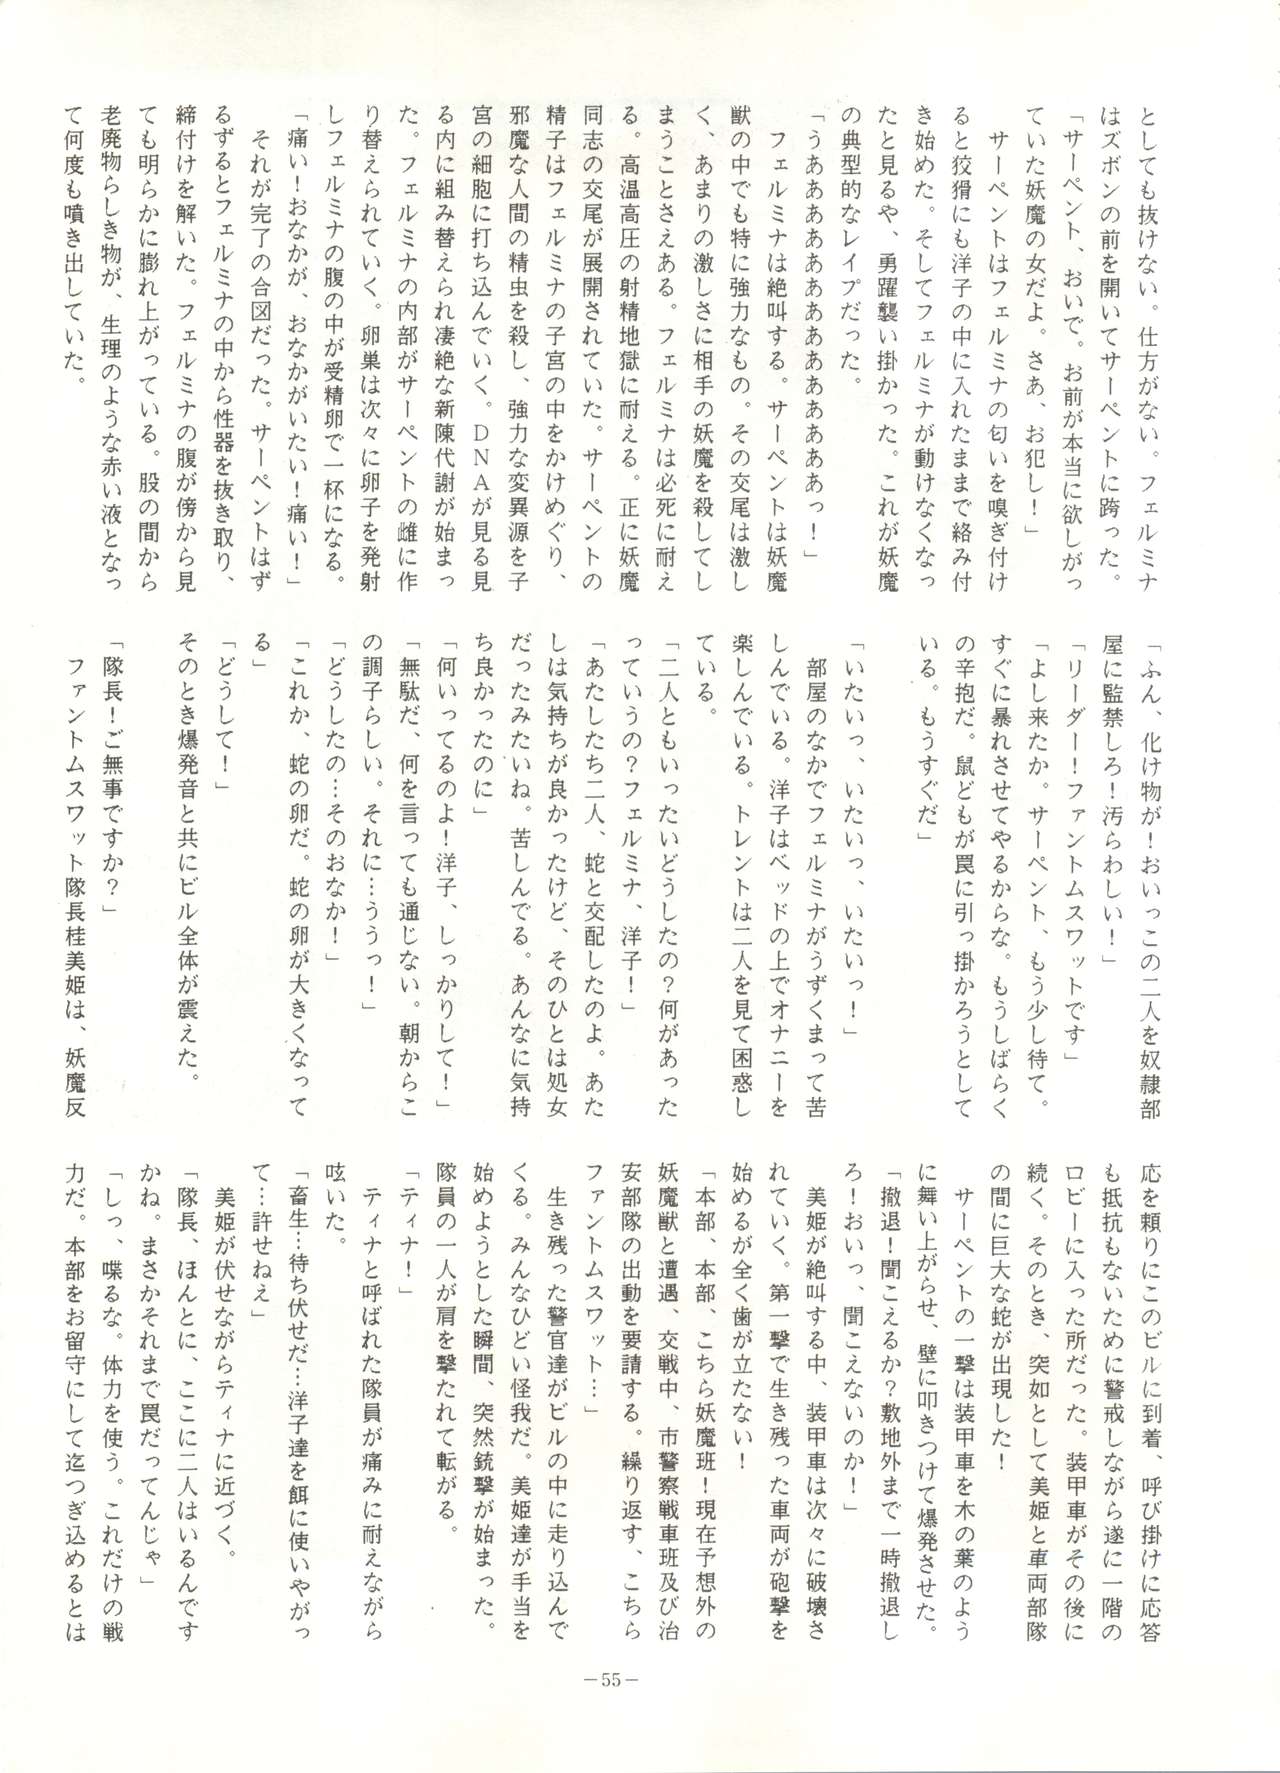 としても抜けない。仕方がない。フェルミナ
はズボンの前を開いてサーペントに跨った。
「サーペント、おいで。お前が本当に欲しがっ
ていた妖魔の女だよ。さあ、お犯し！」
　サーペントはフェルミナの匂いを嗅ぎ付け
ると狡猾にも洋子の中に入れたままで絡み付
き始めた。そしてフェルミナが動けなくなっ
たと見るや、勇躍襲い掛かった。これが妖魔
の典型的なレイプだった。
「うああああああああああああああっ！」
　フェルミナは絶叫する。サーペントは妖魔
獣の中でも特に強力なもの。その交尾は激し
く、あまりの激しさに相手の妖魔を殺してし
まうことさえある。フェルミナは必死に耐え
る。高温高圧の射精地獄に耐える。正に妖魔
同志の交尾が展開されていた。サーペントの
精子はフェルミナの子宮の中をかけめぐり、
邪魔な人間の精虫を殺し、強力な変異源を子
宮の細胞に打ち込んでいく。ＤＮＡが見る見
る内に組み替えられ凄絶な新陳代謝が始まっ
た。フェルミナの内部がサーペントの雌に作
り替えられていく。卵巣は次々に卵子を発射
しフェルミナの腹の中が受精卵で一杯になる。
「痛い！おなかが、おなかがいたい！痛い！」
　それが完了の合図だった。サーペントはず
るずるとフェルミナの中から性器を抜き取り、
締付けを解いた。フェルミナの腹が傍から見
ても明らかに膨れ上がっている。股の間から
老廃物らしき物が、生理のような赤い液となっ
て何度も噴き出していた。
「ふん、化け物が！おいっこの二人を奴隷部
屋に監禁しろ！汚らわしい！」
「リーダー！ファントムスワットです」
「よし来たか。サーペント、もう少し待て。
すぐに暴れさせてやるからな。もうしばらく
の辛抱だ。鼠どもが罠に引っ掛かろうとして
いる。もうすぐだ」
「いたいっ、いたいっ、いたいっ！」
　部屋のなかでフェルミナがうずくまって苦
しんでいる。洋子はベッドの上でオナニーを
楽しんでいる。トレントは二人を見て困惑し
ている。
「二人ともいったいどうしたの？何があった
っていうの？フェルミナ、洋子！」
「あたしたち二人、蛇と交配したのよ。あた
しは気持ちが良かったけど、そのひとは処女
だったみたいね。苦しんでる。あんなに気持
ち良かったのに」
「何いってるのよ！洋子、しっかりして！」
「無駄だ、何を言っても通じない。朝からこ
の調子らしい。それに…ううっ！」
「どうしたの…そのおなか！」
「これか、蛇の卵だ。蛇の卵が大きくなって
る」
「どうして！」
そのとき爆発音と共にビル全体が震えた。
「隊長！ご無事ですか？」
　ファントムスワット隊長桂美姫は、妖魔反
応を頼りにこのビルに到着、呼び掛けに応答
も抵抗もないために警戒しながら遂に一階の
ロビーに入った所だった。装甲車がその後に
続く。そのとき、突如として美姫と車両部隊
の間に巨大な蛇が出現した！
　サーペントの一撃は装甲車を木の葉のよう
に舞い上がらせ、壁に叩きつけて爆発させた。
「撤退！聞こえるか？敷地外まで一時撤退し
ろ！おいっ、聞こえないのか！」
　美姫が絶叫する中、装甲車は次々に破壊さ
れていく。第一撃で生き残った車両が砲撃を
始めるが全く歯が立たない！
「本部、本部、こちら妖魔班！現在予想外の
妖魔獣と遭遇、交戦中、市警察戦車班及び治
安部隊の出動を要請する。繰り返す、こちら
ファントムスワット…」
　生き残った警官達がビルの中に走り込んで
くる。みんなひどい怪我だ。美姫達が手当を
始めようとした瞬間、突然銃撃が始まった。
隊員の一人が肩を撃たれて転がる。
「ティナ！」
　ティナと呼ばれた隊員が痛みに耐えながら
呟いた。
「畜生…待ち伏せだ…洋子達を餌に使いやがっ
て…許せねえ」
　美姫が伏せながらティナに近づく。
「隊長、ほんとに、ここに二人はいるんです
かね。まさかそれまで罠だってんじゃ」
「しっ、喋るな。体力を使う。これだけの戦
力だ。本部をお留守にして迄つぎ込めるとは
－55－